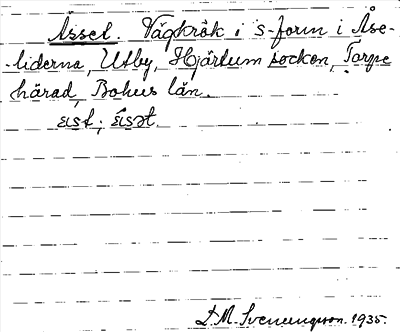 Ässet. Vägkrök i s-form i Åse-
-liderna, Utby, Hjärtum socken, Torpe
härad, Bohus län.
D.M. Svenungsson. 1935.